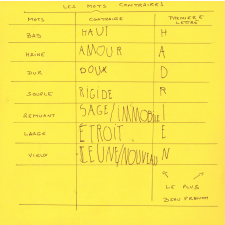 LES MOTS CONTRAIRES
MOTS CONTRAIRE PREMIERE LETTRE
BAS HAUT H
HAINE AMOUR A
DUR DOUX D
SOUPLE RIGIDE R
REMUANT SAGE/IMMOBILE I
LARGE ETROIT E
VIEUX JEUNE/NOUVEAU N
LE PLUS
BEAU PRENOM